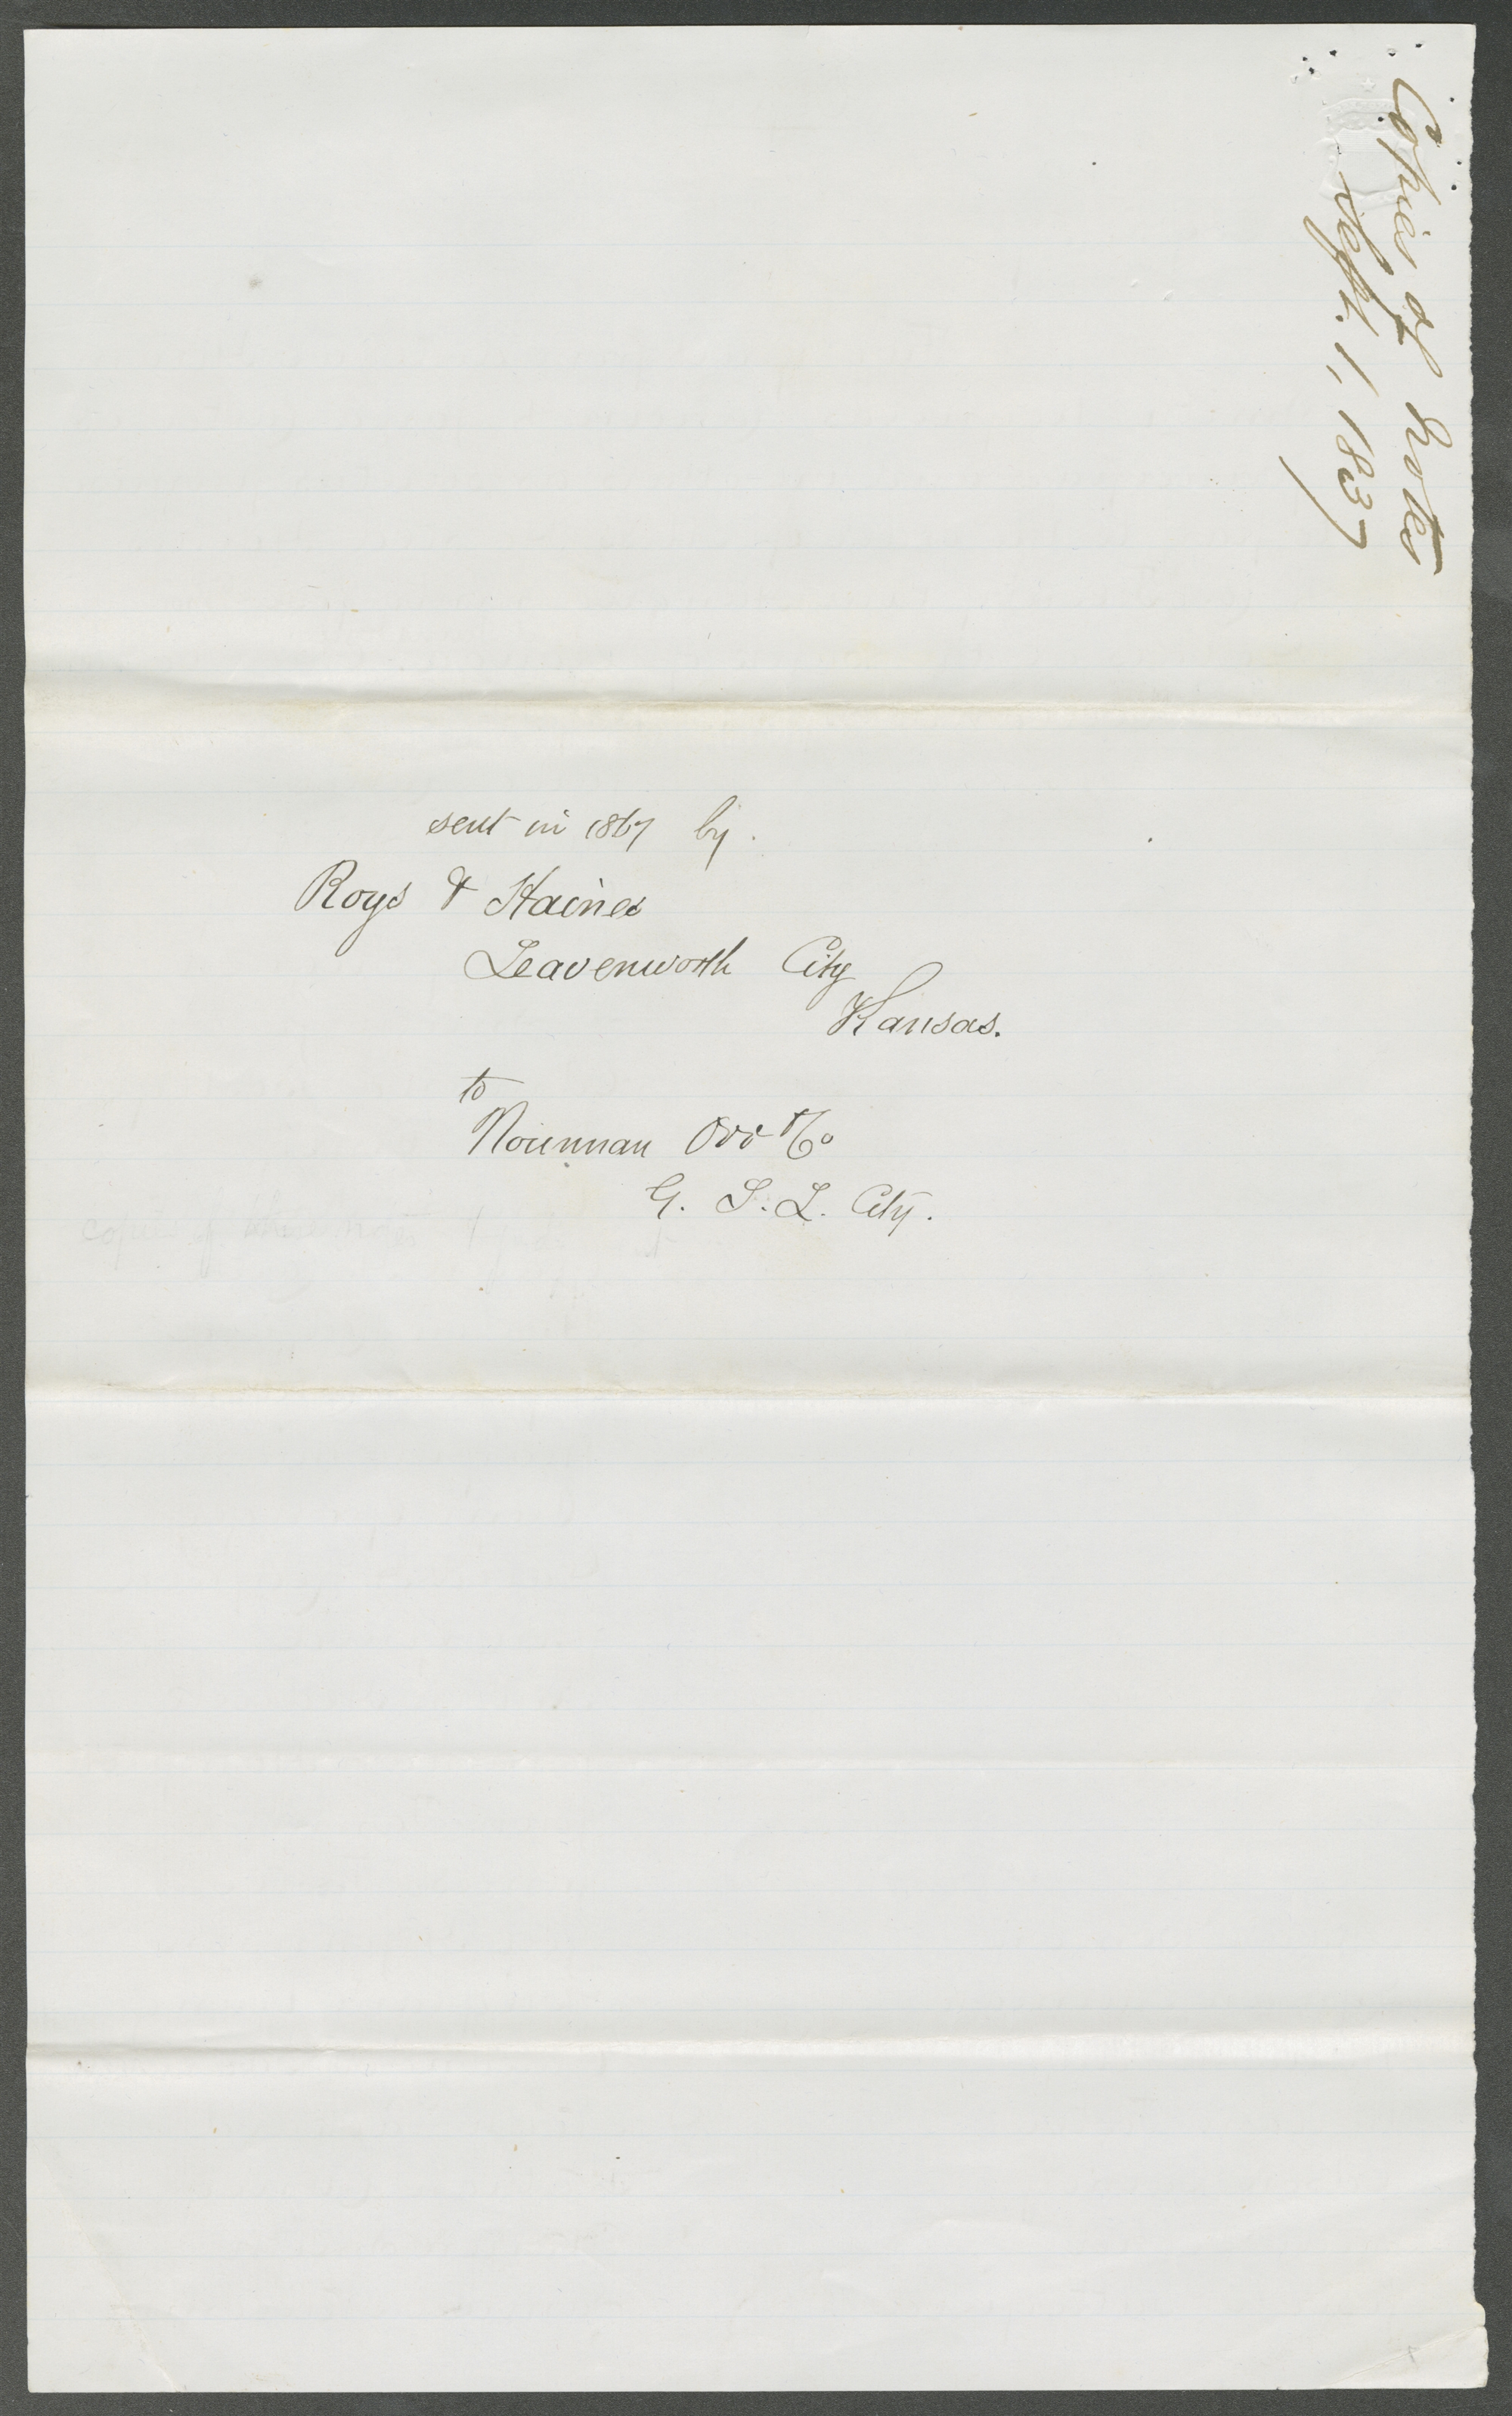 Copies of Notes
Sept. 1, 1837
sent in 1867 by.
Roys & Haines
Leavenworth City
Kansas.
to
Nounnan Orr & Co
G. S. L. City.
copies of